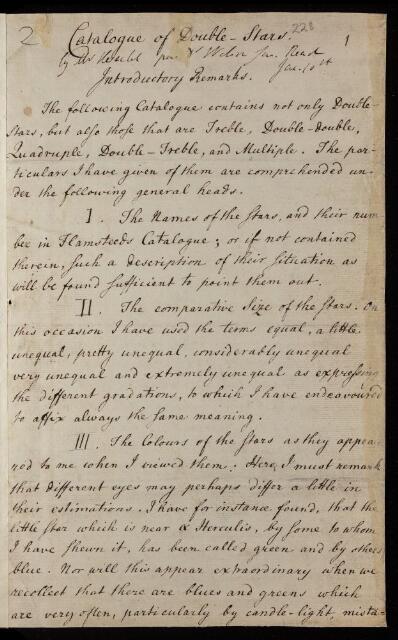 2 Catalogue of Double-Stars. 228 1
by Mr Herschel Wilson Jun. Read
Introductory Remarks. Jan. 10
The following Catalogue contains not only Double-
Stars, but also those that are Treble, Double-Double,
Quadruple, Double-Treble, and Multiple. The par-
ticulars I have given of them are comprehended un-
der the following general heads.
I. The Names of the Stars, and their num
ber in Flamsteeds Catalogue; or if not contained
therein, such a description of their situation as
will be found sufficient to point them out.
II. The comparative Size of the Stars. On
this occasion I have used the terms equal, a little
unequal, pretty unequal, considerably unequal
very unequal and extremely unequal as expressing
the different gradations, to which I have endeavoured
to affix always the same meaning.
III. The Colours of the Stars as they appea-
red to me when I viewed them. Here, I must remark
that different eyes may perhaps differ a little in
their estimations. I have for instance found, that the
little star which is near α Herculis, by some to whom
I have shewn it, has been called green and by others
blue. Nor will this appear extraordinary when we
recollect that there are blues and greens which
are very often, particularly by candle-light, mista-